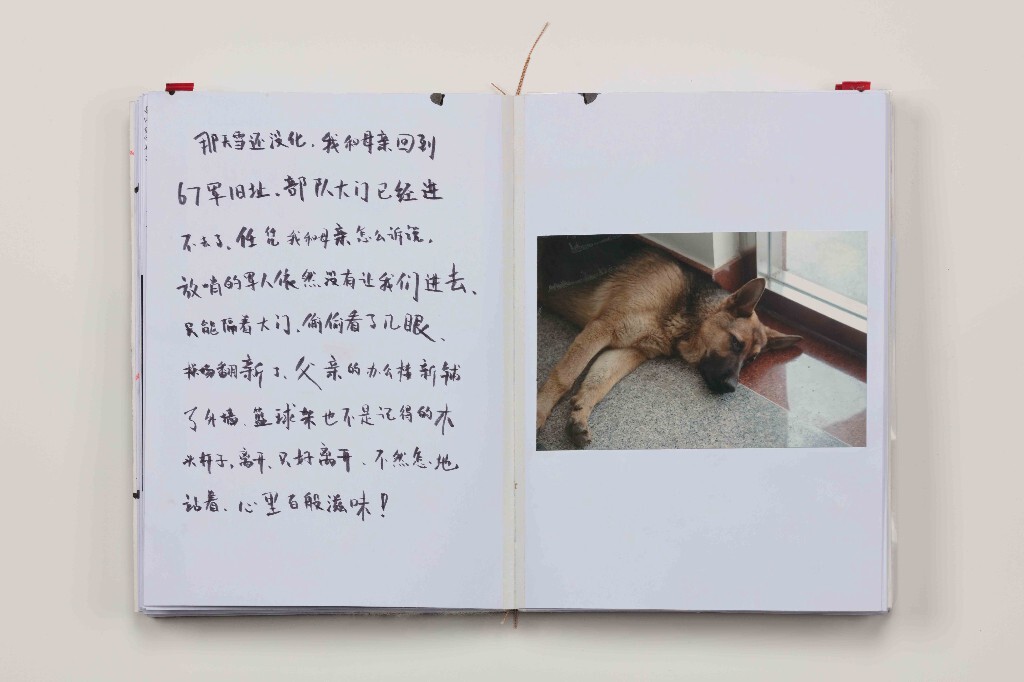 那天雪还没化，我和母亲回到
67军旧址、部队大门已经进
不去了、任凭我和母亲怎么诉说，
放哨的军人依然没有让我们进去、
只能隔着大门、偷偷看了几眼、
操场翻新了、父亲的办公楼新铺
了外墙、篮球架也不是记得的木
头杆子，离开、只好离开、不然怎地
站着、心里百般滋味！